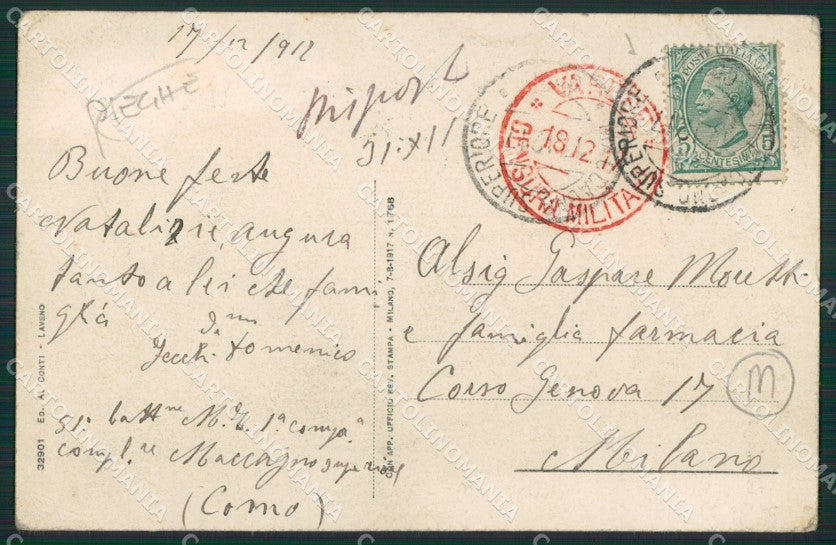 17/12/912
PIEGHE
risposto
31-XII
Buone feste
Natalizie, augura
tanto a lei che fami
glia
Domenico
51° batt.ne M.T. 1ª comp.a
compl.re Maccagno superiore
(Como)
32901 ED. AL CONTI - LAVENO
CON APP. UFFICIO REV. STAMPA - MILANO, 7-8-1917 N. 1768
SUPERIORE
18.12.17
CENSURA MILITARE
SUPERIORE
POSTE ITALIANE
5 CENTESIMI 5
Al sig Gaspare
e famiglia farmacia
Corso Genova 17
M
Milano
CARTOLINOMANIA